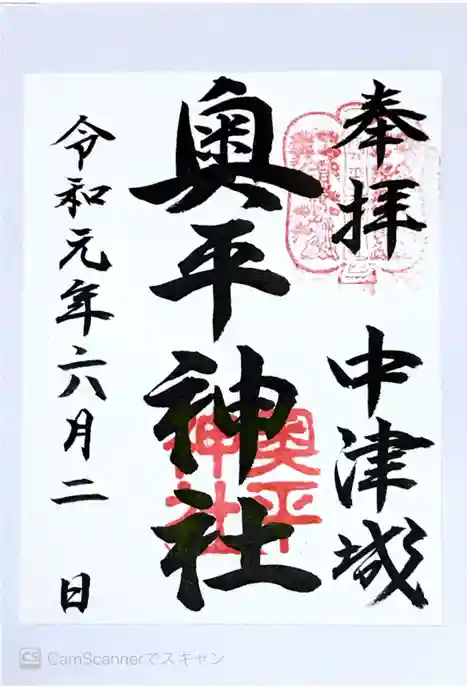 奉拝
中津城
奥平神社
奥平
神社
令和元年六月二日
CS CamScannerでスキャン